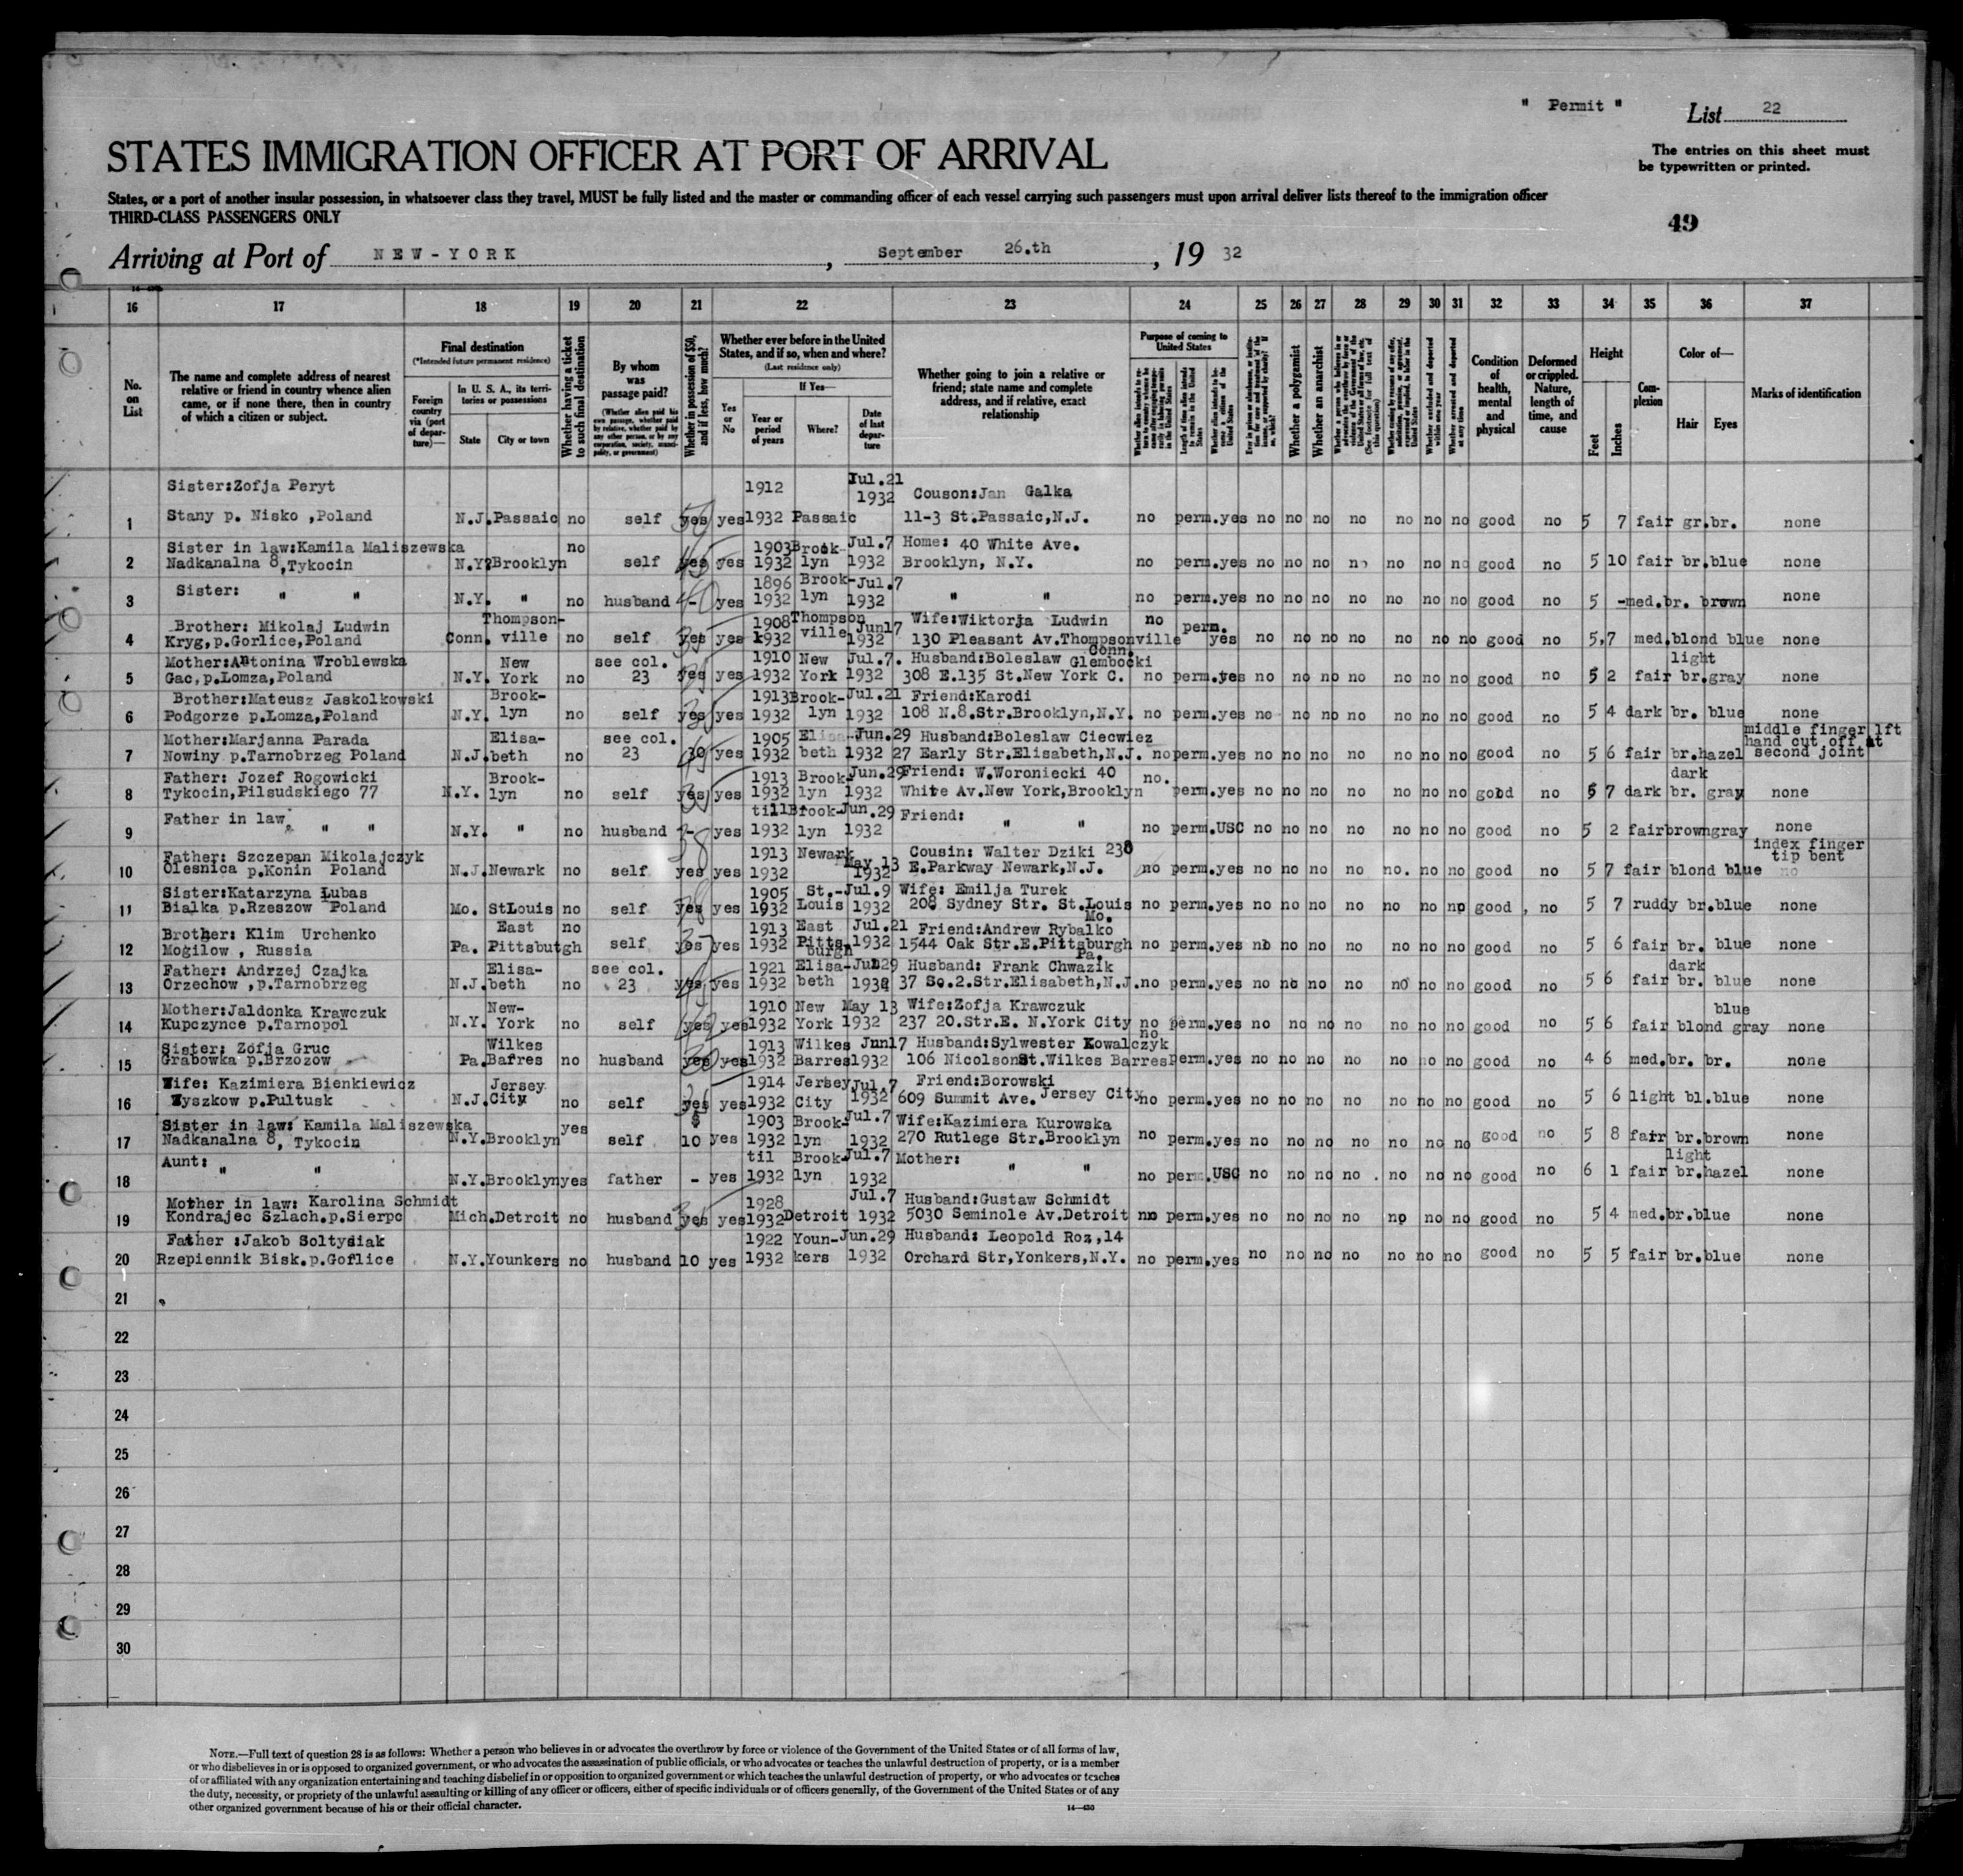 " Permit "
List 22
STATES IMMIGRATION OFFICER AT PORT OF ARRIVAL
The entries on this sheet must
be typewritten or printed.
States, or a port of another insular possession, in whatsoever class they travel, MUST be fully listed and the master or commanding officer of each vessel carrying such passengers must upon arrival deliver lists thereof to the immigration officer
THIRD-CLASS PASSENGERS ONLY
49
Arriving at Port of NEW-YORK , September 26.th , 19 32
16 17 18 19 20 21 22 23 24 25 26 27 28 29 30 31 32 33 34 35 36 37
No. on List
The name and complete address of nearest relative or friend in country whence alien came, or if none there, then in country of which a citizen or subject.
Final destination
(*Intended future permanent residence)
Foreign country via (port of departure)—
In U. S. A., its territories or possessions
State City or town
Whether having a ticket to such final destination
By whom was passage paid?
(Whether alien paid his own passage, whether paid by relative, whether paid by any other person, or by any corporation, society, municipality, or government)
Whether in possession of $50, and if less, how much?
Whether ever before in the United States, and if so, when and where?
(Last residence only)
If Yes—
Yes or No
Year or period of years
Where?
Date of last departure
Whether going to join a relative or friend; state name and complete address, and if relative, exact relationship
Purpose of coming to United States
Whether a polygamist
Whether an anarchist
Condition of health, mental and physical
Deformed or crippled. Nature, length of time, and cause
Height
Feet Inches
Complexion
Color of—
Hair Eyes
Marks of identification
Sister:Zofja Peryt 1912 Jul.21 1932 Couson:Jan Galka
1 Stany p. Nisko ,Poland N.J. Passaic no self yes yes 1932 Passaic 11-3 St.Passaic,N.J. no perm. yes no no no no no no no good no 5 7 fair gr. br. none
Sister in law:Kamila Maliszewska no 1903 Brook- Jul.7 Home: 40 White Ave.
2 Nadkanalna 8,Tykocin N.Y. Brooklyn self yes yes 1932 lyn 1932 Brooklyn, N.Y. no perm. yes no no no no no no no good no 5 10 fair br. blue none
Sister: " " 1896 Brook- Jul.7
3 N.Y. " no husband - yes 1932 lyn 1932 " " no perm. yes no no no no no no no good no 5 - med. br. brown none
Brother: Mikolaj Ludwin Thompson- 1908 Thompson Jun17 Wife:Wiktorja Ludwin no perm.
4 Kryg,p.Gorlice,Poland Conn. ville no self yes yes 1932 ville 1932 130 Pleasant Av.Thompsonville Conn. yes no no no no no no no good no 5,7 med. blond blue none
Mother:Antonina Wroblewska New see col. 1910 New Jul.7. Husband:Boleslaw Glembocki light
5 Gac,p.Lomza,Poland N.Y. York no 23 yes yes 1932 York 1932 308 E.135 St.New York C. no perm. yes no no no no no no no good no 5 2 fair br. gray none
Brother:Mateusz Jaskolkowski Brook- 1913 Brook- Jul.21 Friend:Karodi
6 Podgorze p.Lomza,Poland N.Y. lyn no self yes yes 1932 lyn 1932 108 N.8.Str.Brooklyn,N.Y. no perm. yes no no no no no no no good no 5 4 dark br. blue none
Mother:Marjanna Parada Elisa- see col. 1905 Elisa- Jun.29 Husband:Boleslaw Ciecwiez middle finger lft hand cut off at
7 Nowiny p.Tarnobrzeg Poland N.J. beth no 23 30 yes 1932 beth 1932 27 Early Str.Elisabeth,N.J. no perm. yes no no no no no no no good no 5 6 fair br. hazel second joint
Father: Jozef Rogowicki Brook- 1913 Brook- Jun.29 Friend: W.Woroniecki 40 no. dark
8 Tykocin,Pilsudskiego 77 N.Y. lyn no self yes yes 1932 lyn 1932 White Av.New York,Brooklyn perm. yes no no no no no no no good no 5 7 dark br. gray none
Father in law, " " till Brook- Jun.29 Friend:
9 N.Y. " no husband - yes 1932 lyn 1932 " " no perm. USC no no no no no no no good no 5 2 fair brown gray none
Father: Szczepan Mikolajczyk 1913 Newark May 13 Cousin: Walter Dziki 238 index finger tip bent
10 Olesnica p.Konin Poland N.J. Newark no self yes yes 1932 1932 E.Parkway Newark,N.J. no perm. yes no no no no no. no no good no 5 7 fair blond blue no
Sister:Katarzyna Lubas 1905 St.- Jul.9 Wife: Emilja Turek
11 Bialka p.Rzeszow Poland Mo. StLouis no self yes yes 1932 Louis 1932 208 Sydney Str. St.Louis Mo. no perm. yes no no no no no no no good , no 5 7 ruddy br. blue none
Brother: Klim Urchenko East no 1913 East Jul.21 Friend:Andrew Rybalko
12 Mogilow , Russia Pa. Pittsbutgh self yes yes 1932 Pitts- burgh 1932 1544 Oak Str.E.Pittsburgh Pa. no perm. yes no no no no no no no good no 5 6 fair br. blue none
Father: Andrzej Czajka Elisa- see col. 1921 Elisa- Jun29 Husband: Frank Chwazik dark
13 Orzechow ,p.Tarnobrzeg N.J. beth no 23 yes yes 1932 beth 1932 37 So.2.Str.Elisabeth,N.J. no perm. yes no no no no no no no good no 5 6 fair br. blue none
Mother:Jaldonka Krawczuk New- 1910 New May 13 Wife:Zofja Krawczuk blue
14 Kupczynce p.Tarnopol N.Y. York no self yes yes 1932 York 1932 237 20.Str.E. N.York City no perm. yes no no no no no no no good no 5 6 fair blond gray none
Sister: Zofja Gruc Wilkes 1913 Wilkes Jun17 Husband:Sylwester Kowalczyk no
15 Grabowka p.Brzozow Pa. Barres no husband yes yes 1932 Barres 1932 106 Nicolson St.Wilkes Barres perm. yes no no no no no no no good no 4 6 med. br. br. none
Wife: Kazimiera Bienkiewicz Jersey 1914 Jersey Jul.7 Friend:Borowski
16 Wyszkow p.Pultusk N.J. City no self yes yes 1932 City 1932 609 Summit Ave. Jersey City no perm. yes no no no no no no no good no 5 6 light bl. blue none
Sister in law: Kamila Maliszewska yes $ 1903 Brook- Jul.7 Wife:Kazimiera Kurowska
17 Nadkanalna 8, Tykocin N.Y. Brooklyn self 10 yes 1932 lyn 1932 270 Rutlege Str.Brooklyn no perm. yes no no no no no no no good no 5 8 fair br. brown none
Aunt: " " til Brook- Jul.7 Mother: light
18 N.Y. Brooklyn yes father - yes 1932 lyn 1932 " " no perm. USC no no no no . no no no good no 6 1 fair br. hazel none
Mother in law: Karolina Schmidt 1928 Jul.7 Husband:Gustaw Schmidt
19 Kondrajec Szlach.p.Sierpc Mich. Detroit no husband yes yes 1932 Detroit 1932 5030 Seminole Av.Detroit no perm. yes no no no no no no no good no 5 4 med. br. blue none
Father :Jakob Soltysiak 1922 Youn- Jun.29 Husband: Leopold Roz,14
20 Rzepiennik Bisk.p.Gorlice N.Y. Younkers no husband 10 yes 1932 kers 1932 Orchard Str,Yonkers,N.Y. no perm. yes no no no no no no no good no 5 5 fair br. blue none
21
22
23
24
25
26
27
28
29
30
NOTE.—Full text of question 28 is as follows: Whether a person who believes in or advocates the overthrow by force or violence of the Government of the United States or of all forms of law,
or who disbelieves in or is opposed to organized government, or who advocates the assassination of public officials, or who advocates or teaches the unlawful destruction of property, or is a member
of or affiliated with any organization entertaining and teaching disbelief in or opposition to organized government or which teaches the unlawful destruction of property, or who advocates or teaches
the duty, necessity, or propriety of the unlawful assaulting or killing of any officer or officers, either of specific individuals or of officers generally, of the Government of the United States or of any
other organized government because of his or their official character.
14—430